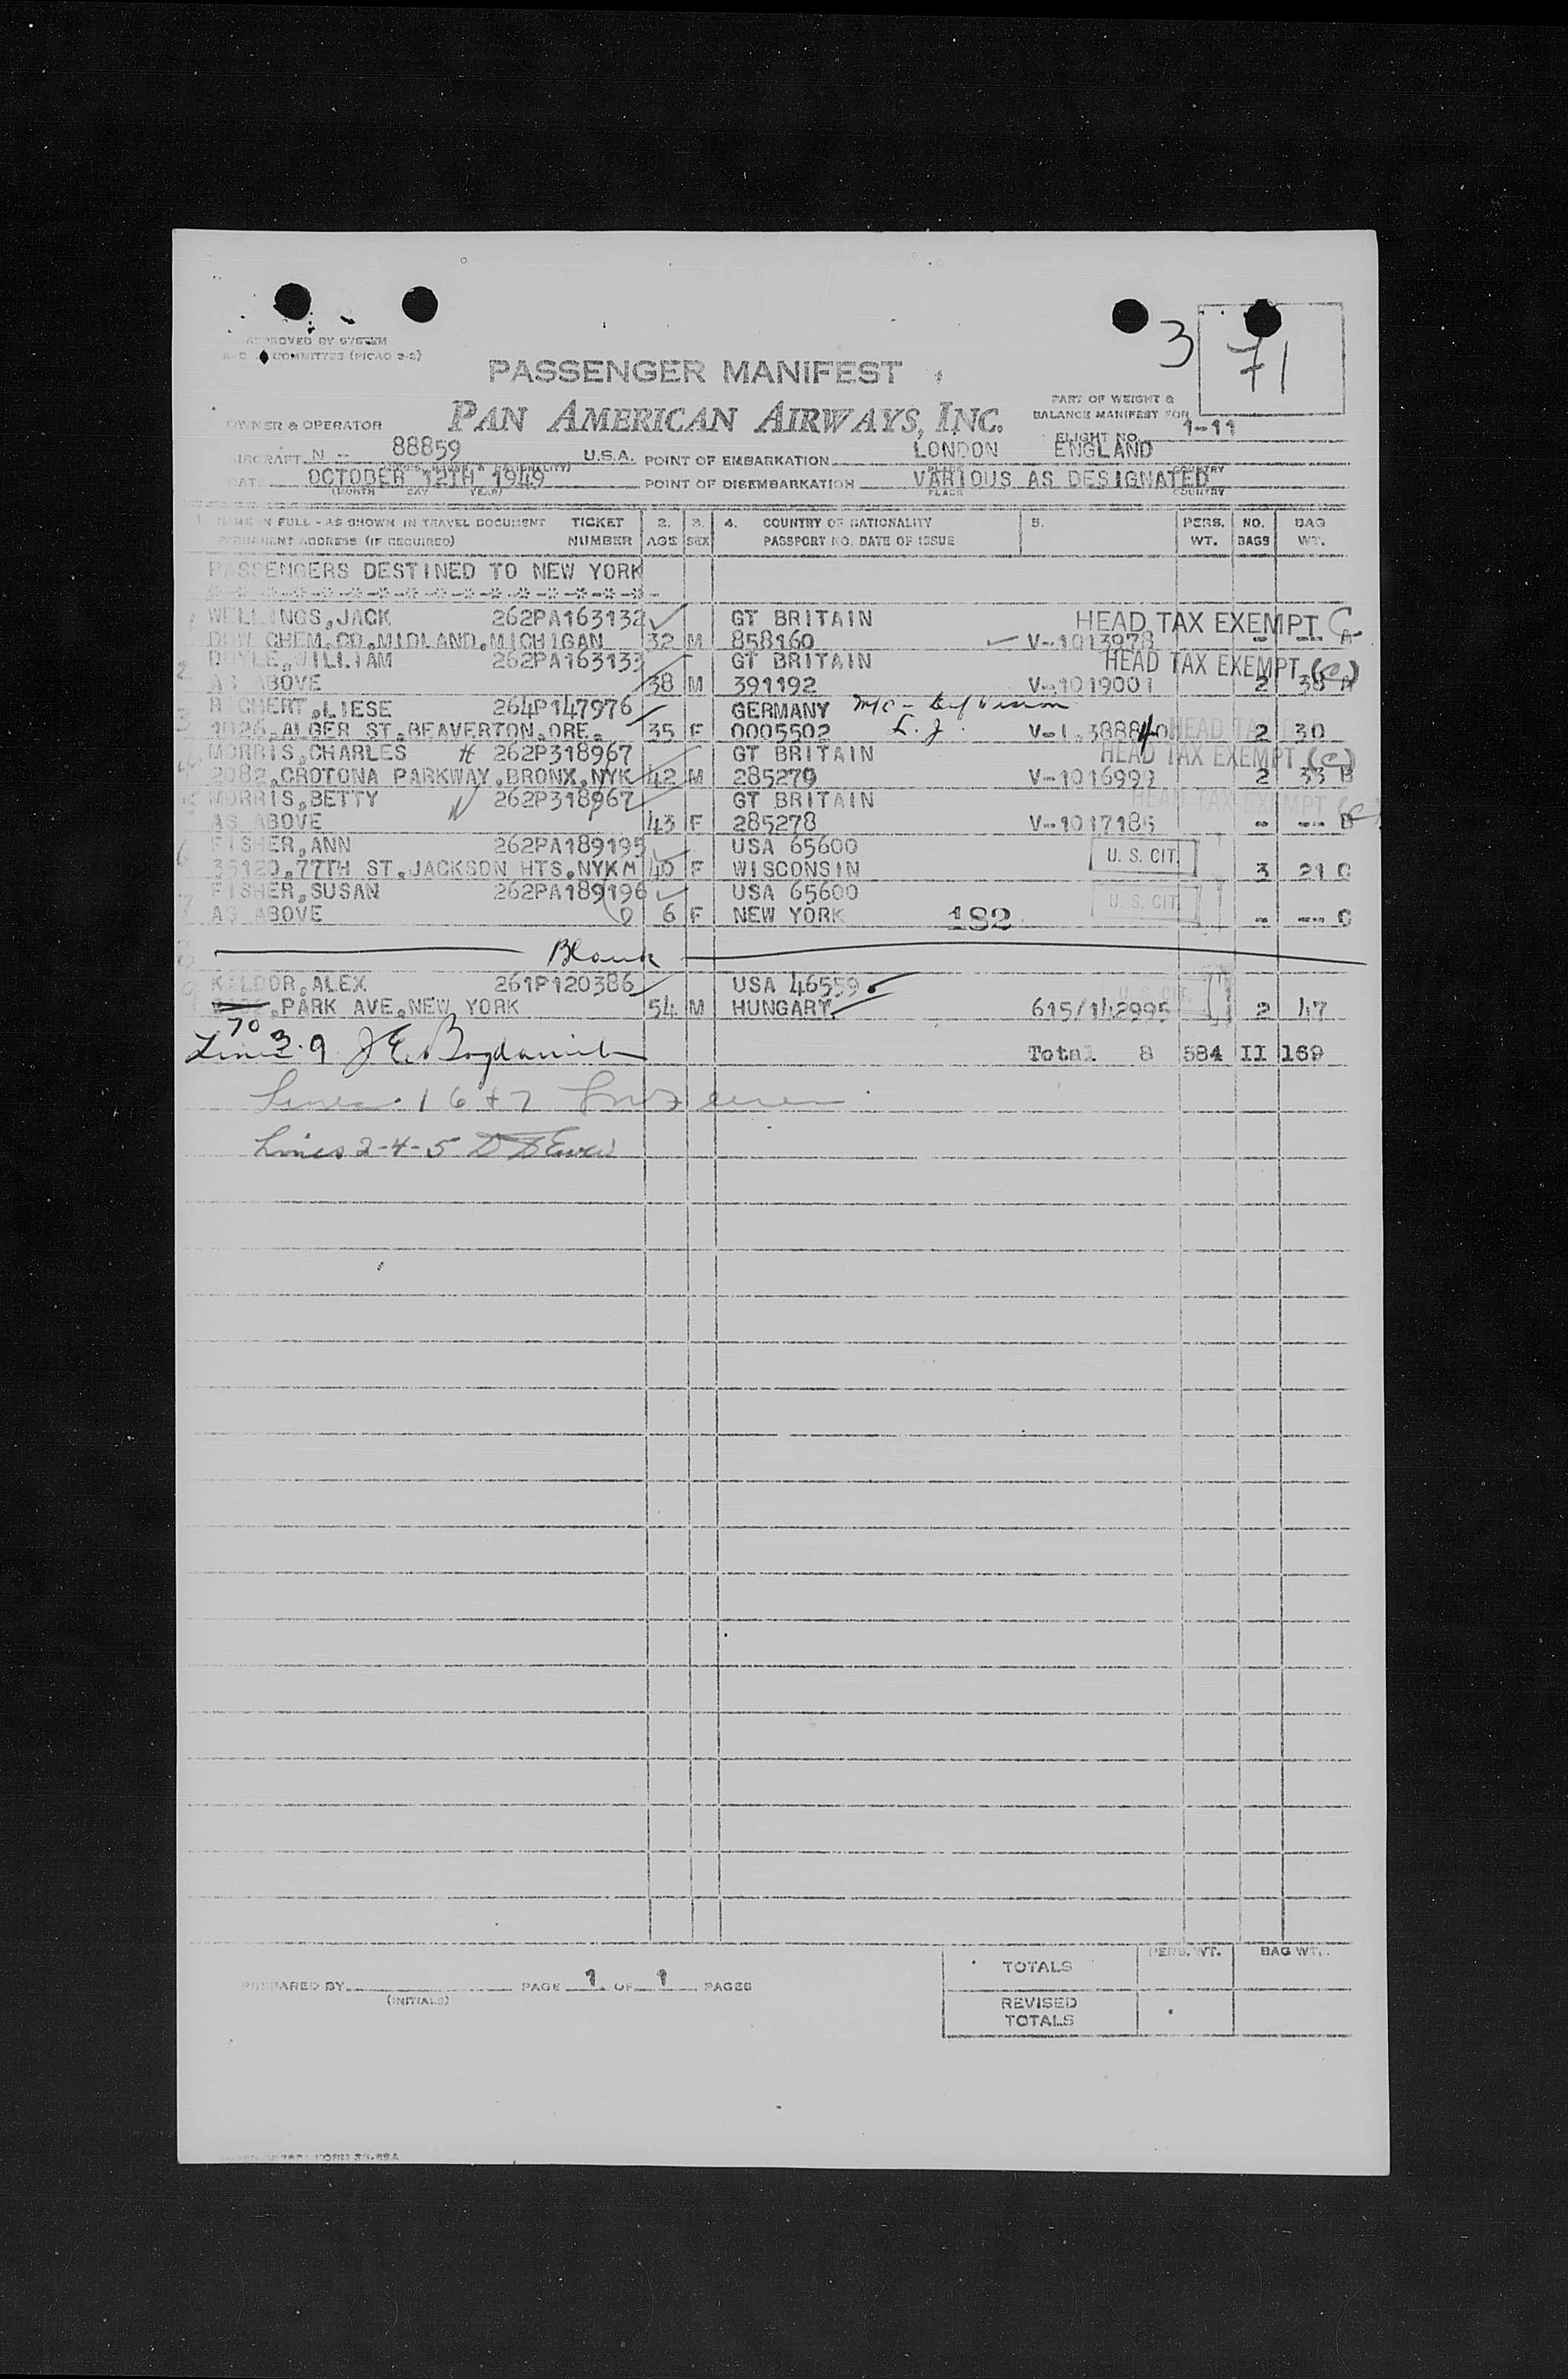 APPROVED BY SYSTEM
COMMITTEE (PICAO 2-2)
3 71
PASSENGER MANIFEST
PART OF WEIGHT &
BALANCE MANIFEST FOR
OWNER & OPERATOR PAN AMERICAN AIRWAYS, INC. FLIGHT NO. 1-11
AIRCRAFT N -- 88859 U.S.A. POINT OF EMBARKATION LONDON ENGLAND
PLACE COUNTRY
DATE OCTOBER 12TH 1949 POINT OF DISEMBARKATION VARIOUS AS DESIGNATED
(MONTH DAY YEAR) PLACE COUNTRY
1. NAME IN FULL - AS SHOWN IN TRAVEL DOCUMENT TICKET 2. 3. 4. COUNTRY OF NATIONALITY 5. PERS. NO. BAG
PERMANENT ADDRESS (IF REQUIRED) NUMBER AGE SEX PASSPORT NO. DATE OF ISSUE WT. BAGS WT.
PASSENGERS DESTINED TO NEW YORK
1 WELLINGS,JACK 262PA163132 GT BRITAIN HEAD TAX EXEMPT C
DOW CHEM.CO.MIDLAND.MICHIGAN 32 M 858160 V-1013978 - -- A
2 DOYLE,WILLIAM 262PA163133 GT BRITAIN HEAD TAX EXEMPT (C)
AS ABOVE 38 M 391192 V-1019001 2 38 A
3 RICHERT,LIESE 264P147976 GERMANY
1026,ALGER ST.BEAVERTON.ORE. 35 F 0005502 L.J. HEAD TAX 2 30
4 MORRIS,CHARLES H 262P318967 GT BRITAIN HEAD TAX EXEMPT (C)
2082,CROTONA PARKWAY.BRONX.NYK 42 M 285279 V-1016992 2 33 B
5 MORRIS,BETTY 262P318967 GT BRITAIN HEAD TAX EXEMPT (C)
AS ABOVE 43 F 285278 V-1017185 - -- B
6 FISHER,ANN 262PA189195 USA 65600 U. S. CIT.
35120,77TH ST.JACKSON HTS.NYK 40 F WISCONSIN 3 21 C
7 FISHER,SUSAN 262PA189196 USA 65600 U. S. CIT.
AS ABOVE 6 F NEW YORK 182 - -- C
8 Blank
9 KALDOR,ALEX 261P120386 USA 46559 U. S. CIT.
,PARK AVE.NEW YORK 54 M HUNGARY 615/142995 2 47
70
Lines 3.9 Total 8 584 II 169
Lines 1 6 & 7
Lines 2-4-5
PREPARED BY PAGE 1 OF 1 PAGES
(INITIALS)
PERS. WT. BAG WT.
TOTALS
REVISED
TOTALS